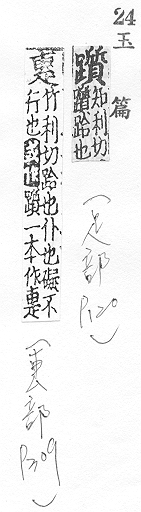 24 玉篇
躓知利切
躓跲也
(足部 P120)
疐竹利切跲也仆也礙不
行也或作躓一本作疐
(叀部 P309)